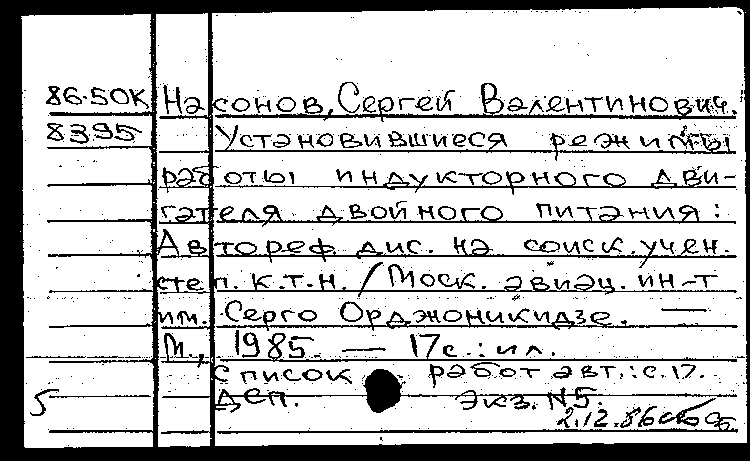 86-50К Насонов, Сергей Валентинович.
8395 Установившиеся режимы
работы индукторного дви-
гателя двойного питания:
Автореф дис. на соиск. учен.
степ. к.т.н. / Моск. авиац. ин-т
им. Серго Орджоникидзе. —
М., 1985. — 17с.: ил.
Список работ авт.: с.17.
5 Деп. Экз. N5.
2.12.86